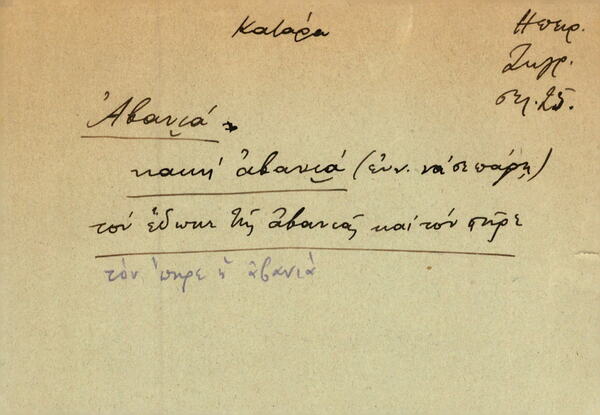 Κατάρα
Ηπειρ.
Ζαγρ.
σελ. 25.
Ἀβανιά
κακή ἀβανιά (ἐνν. νά σε πάρῃ)
τον ἔδωκε τῆς ἀβανιᾶς καί τόν πῆρε
τὸν ἐπῆρε ἡ ἀβανιά